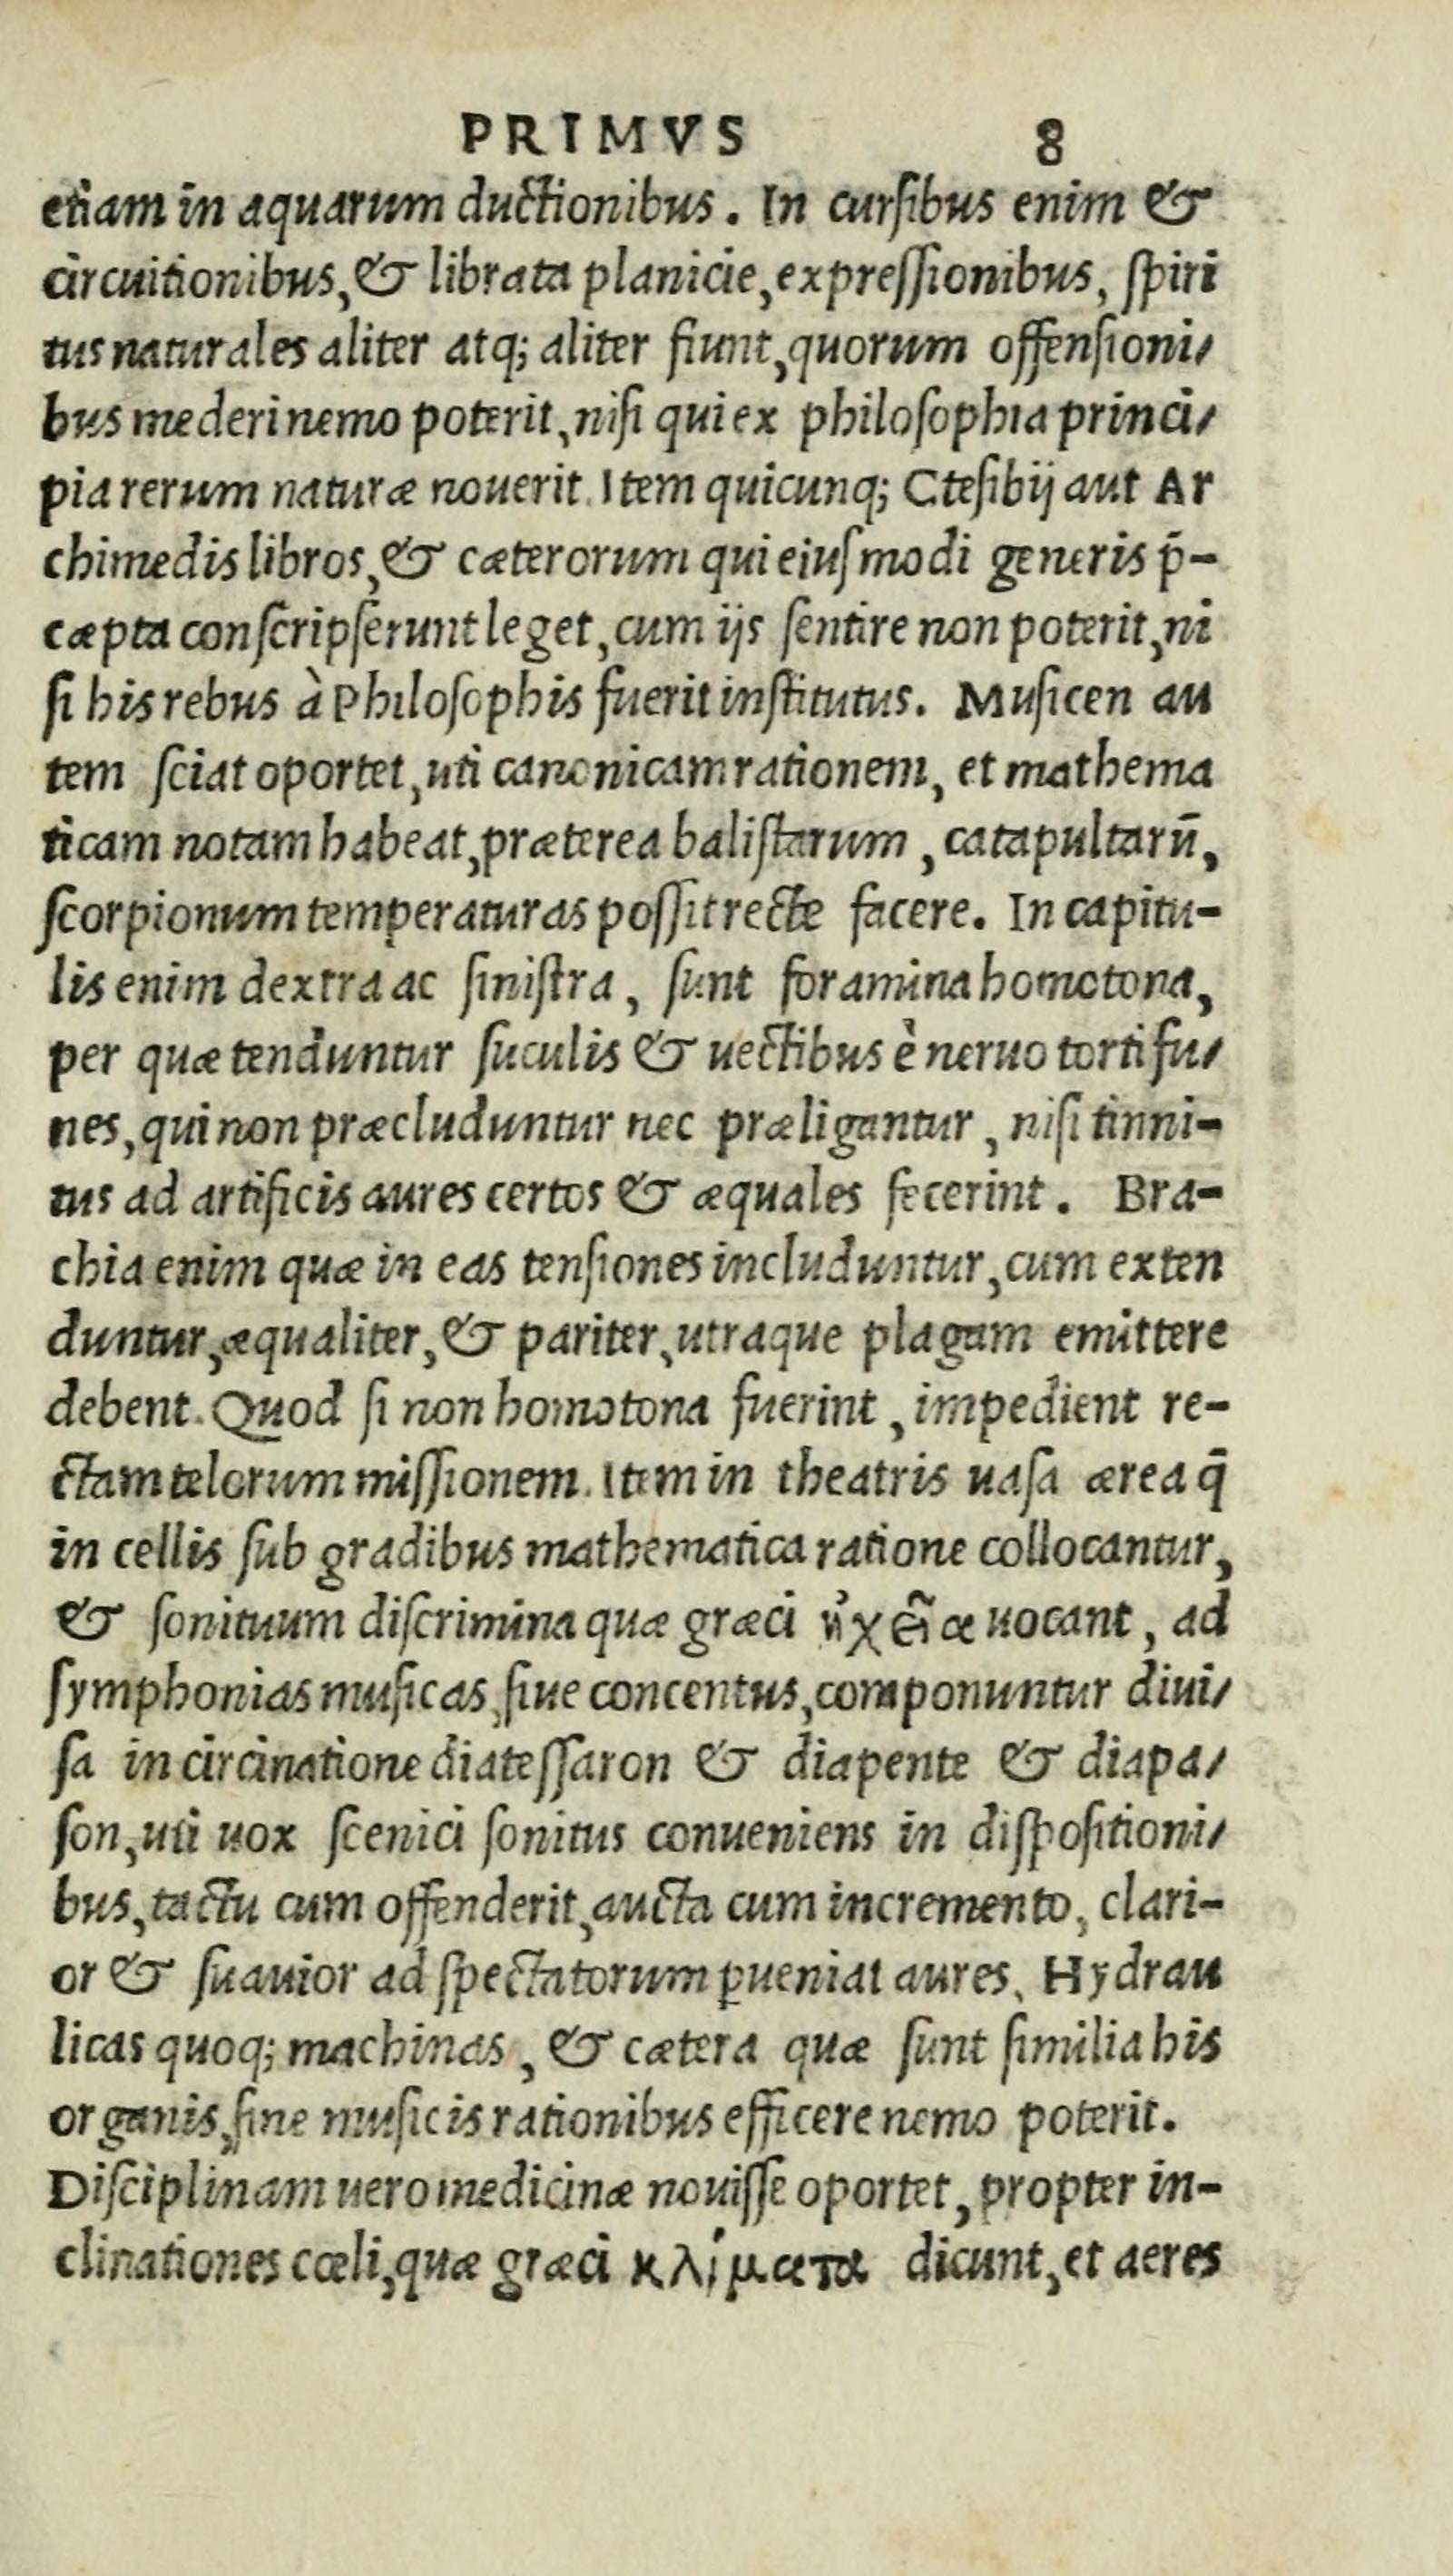 PRIMVS 8
etiam in aquarum ductionibus. In cursibus enim &
circuitionibus, & librata planicie, expressionibus, spiri
tus naturales aliter atq; aliter fiunt, quorum offensioni/
bus mederi nemo poterit, nisi qui ex philosophia princi/
pia rerum naturæ nouerit. Item quicunq; Ctesibij aut Ar
chimedis libros, & cæterorum qui eiusmodi generis p̄-
cæpta conscripserunt leget, cum ijs sentire non poterit, ni
si his rebus à Philosophis fuerit institutus. Musicen au
tem sciat oportet, uti canonicam rationem, et mathema
ticam notam habeat, præterea balistarum, catapultarū,
scorpionum temperaturas possit recte facere. In capitu-
lis enim dextra ac sinistra, sunt foramina homotona,
per quæ tenduntur suculis & uectibus è neruo torti fu/
nes, qui non præcluduntur nec præligantur, nisi tinni-
tus ad artificis aures certos & æquales fecerint. Bra-
chia enim quæ in eas tensiones includuntur, cum exten
duntur, æqualiter, & pariter, utraque plagam emittere
debent. Quod si non homotona fuerint, impedient re-
ctam telorum missionem. Item in theatris uasa ærea q̄
in cellis sub gradibus mathematica ratione collocantur,
& sonituum discrimina quæ græci ἠχεῖα uocant, ad
symphonias musicas, siue concentus, componuntur diui/
sa in circinatione diatessaron & diapente & diapa/
son, uti uox scenici sonitus conueniens in dispositioni/
bus, tactu cum offenderit, aucta cum incremento, clari-
or & suauior ad spectatorum ꝑueniat aures. Hydrau
licas quoq; machinas, & cætera quæ sunt similia his
organis, sine musicis rationibus efficere nemo poterit.
Disciplinam uero medicinæ nouisse oportet, propter in-
clinationes cœli, quæ græci κλίματα dicunt, et aeres